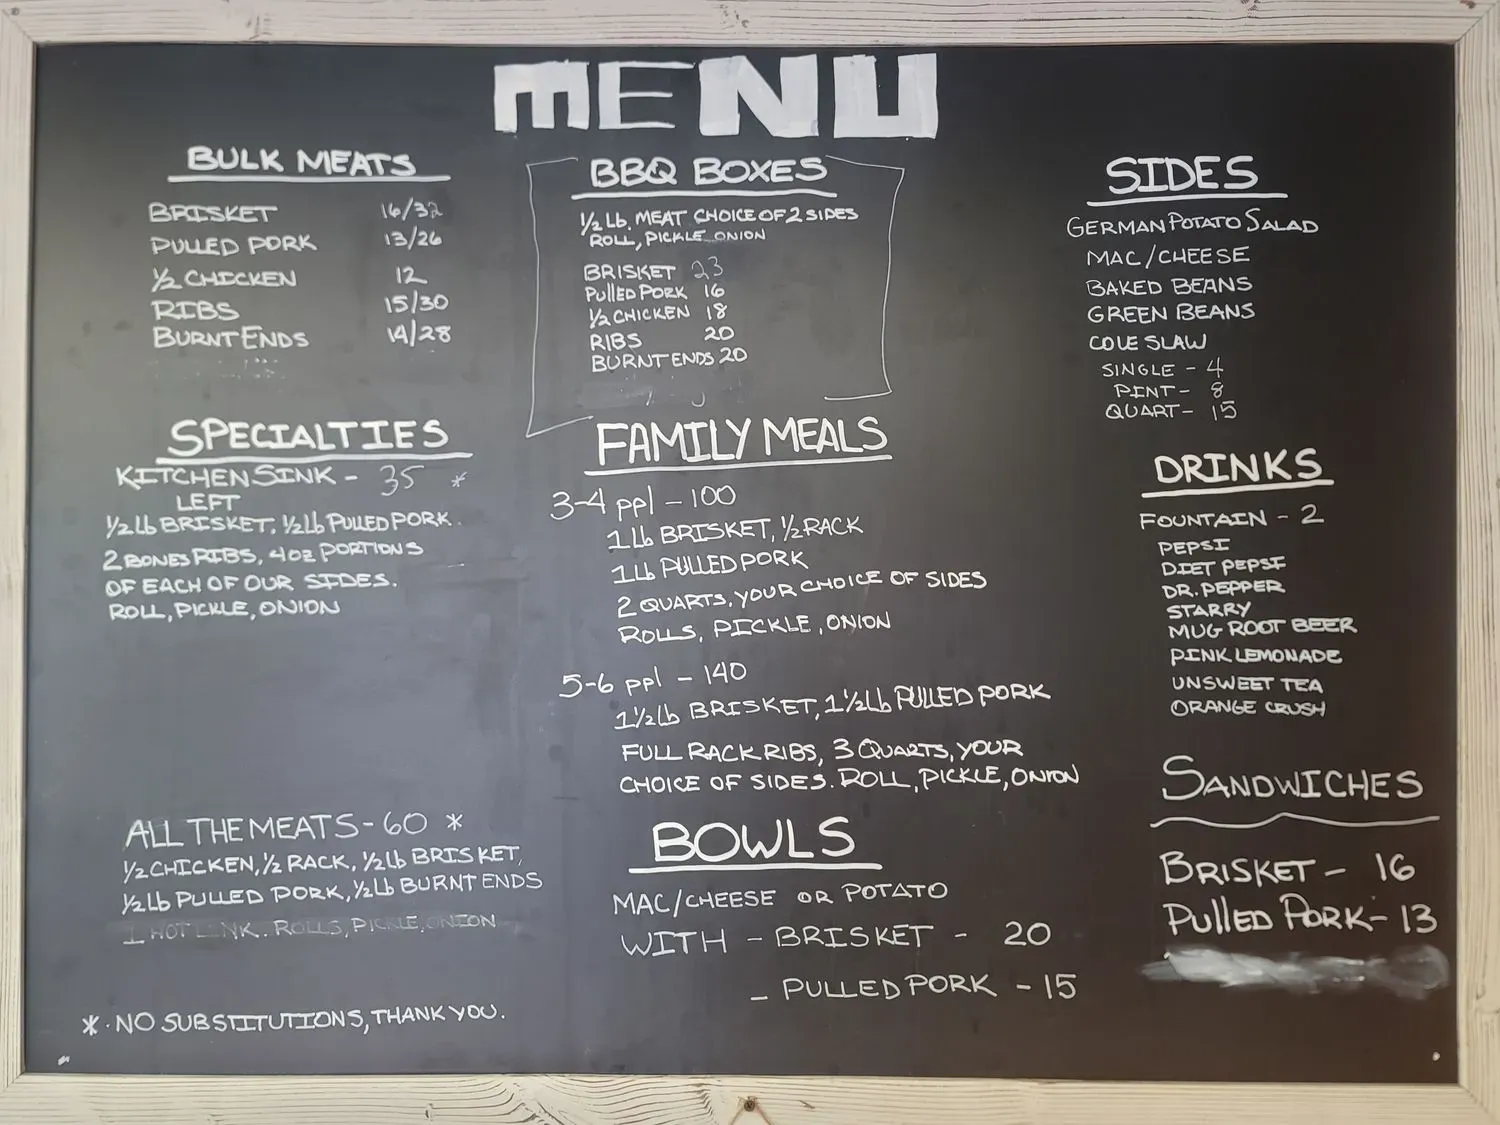 MENU
BULK MEATS
BRISKET 16/32
PULLED PORK 13/26
½ CHICKEN 12
RIBS 15/30
BURNT ENDS 14/28
SPECIALTIES
KITCHEN SINK - 35 *
LEFT
½ lb BRISKET, ½ lb PULLED PORK.
2 BONES RIBS, 4oz PORTIONS
OF EACH OF OUR SIDES.
ROLL, PICKLE, ONION
ALL THE MEATS - 60 *
½ CHICKEN, ½ RACK, ½ lb BRISKET,
½ lb PULLED PORK, ½ lb BURNT ENDS
1 HOT LINK. ROLLS, PICKLE, ONION
* . NO SUBSTITUTIONS, THANK YOU.
BBQ BOXES
½ Lb. MEAT CHOICE OF 2 SIDES
ROLL, PICKLE ONION
BRISKET 23
PULLED PORK 16
½ CHICKEN 18
RIBS 20
BURNT ENDS 20
FAMILY MEALS
3-4 ppl - 100
1 lb BRISKET, ½ RACK
1 Lb PULLED PORK
2 QUARTS, YOUR CHOICE OF SIDES
ROLLS, PICKLE, ONION
5-6 ppl - 140
1½ lb BRISKET, 1½ Lb PULLED PORK
FULL RACK RIBS, 3 QUARTS, YOUR
CHOICE OF SIDES. ROLL, PICKLE, ONION
BOWLS
MAC/CHEESE OR POTATO
WITH - BRISKET - 20
- PULLED PORK - 15
SIDES
GERMAN POTATO SALAD
MAC/CHEESE
BAKED BEANS
GREEN BEANS
COLE SLAW
SINGLE - 4
PINT - 8
QUART - 15
DRINKS
FOUNTAIN - 2
PEPSI
DIET PEPSI
DR. PEPPER
STARRY
MUG ROOT BEER
PINK LEMONADE
UNSWEET TEA
ORANGE CRUSH
SANDWICHES
BRISKET - 16
PULLED PORK - 13